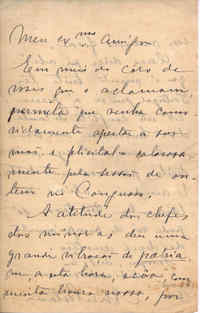 Meu ex.mo Amigo
Em meio do côro de
vozes que o aclamam
permita que venha como
vidamente apertar a sua
mão e felicital-o calorosa
mente pela sessão de on
tem no Congresso.
A atitude dos chefes
dos deu uma
grande vibração de patria
n'esta hora,
muita honra nossa, por